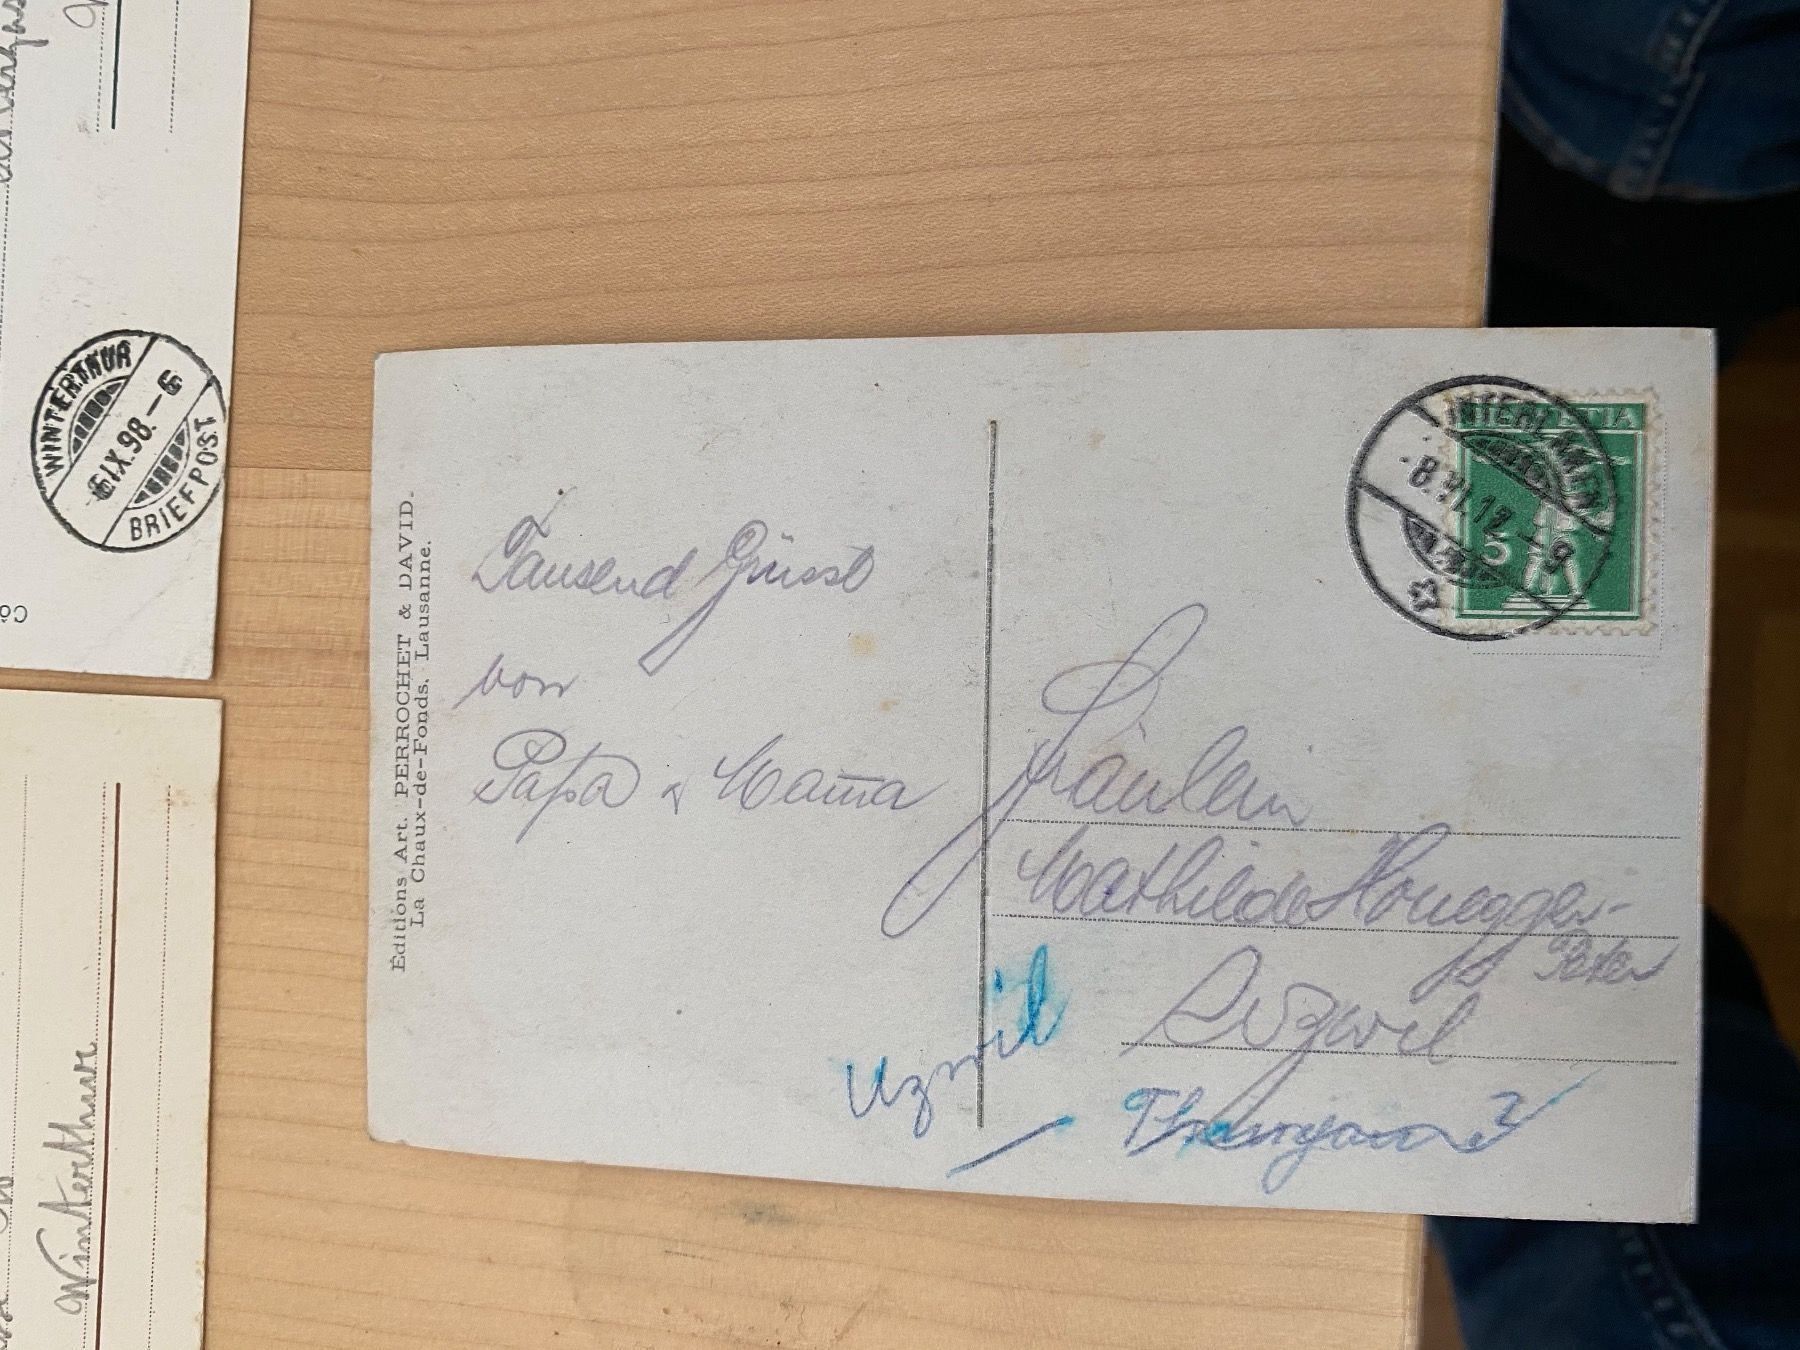 WINTERTHUR
6.IX.98.-6
BRIEFPOST
Winterthur
Éditions Art. PERROCHET & DAVID.
La Chaux-de-Fonds. Lausanne.
Tausend Grüsse
von
Papa & Mama
HELVETIA
5
INTERLAKEN
8.VI.12-9
Fräulein
Mathilde Honegger-
Peter
Uzwil